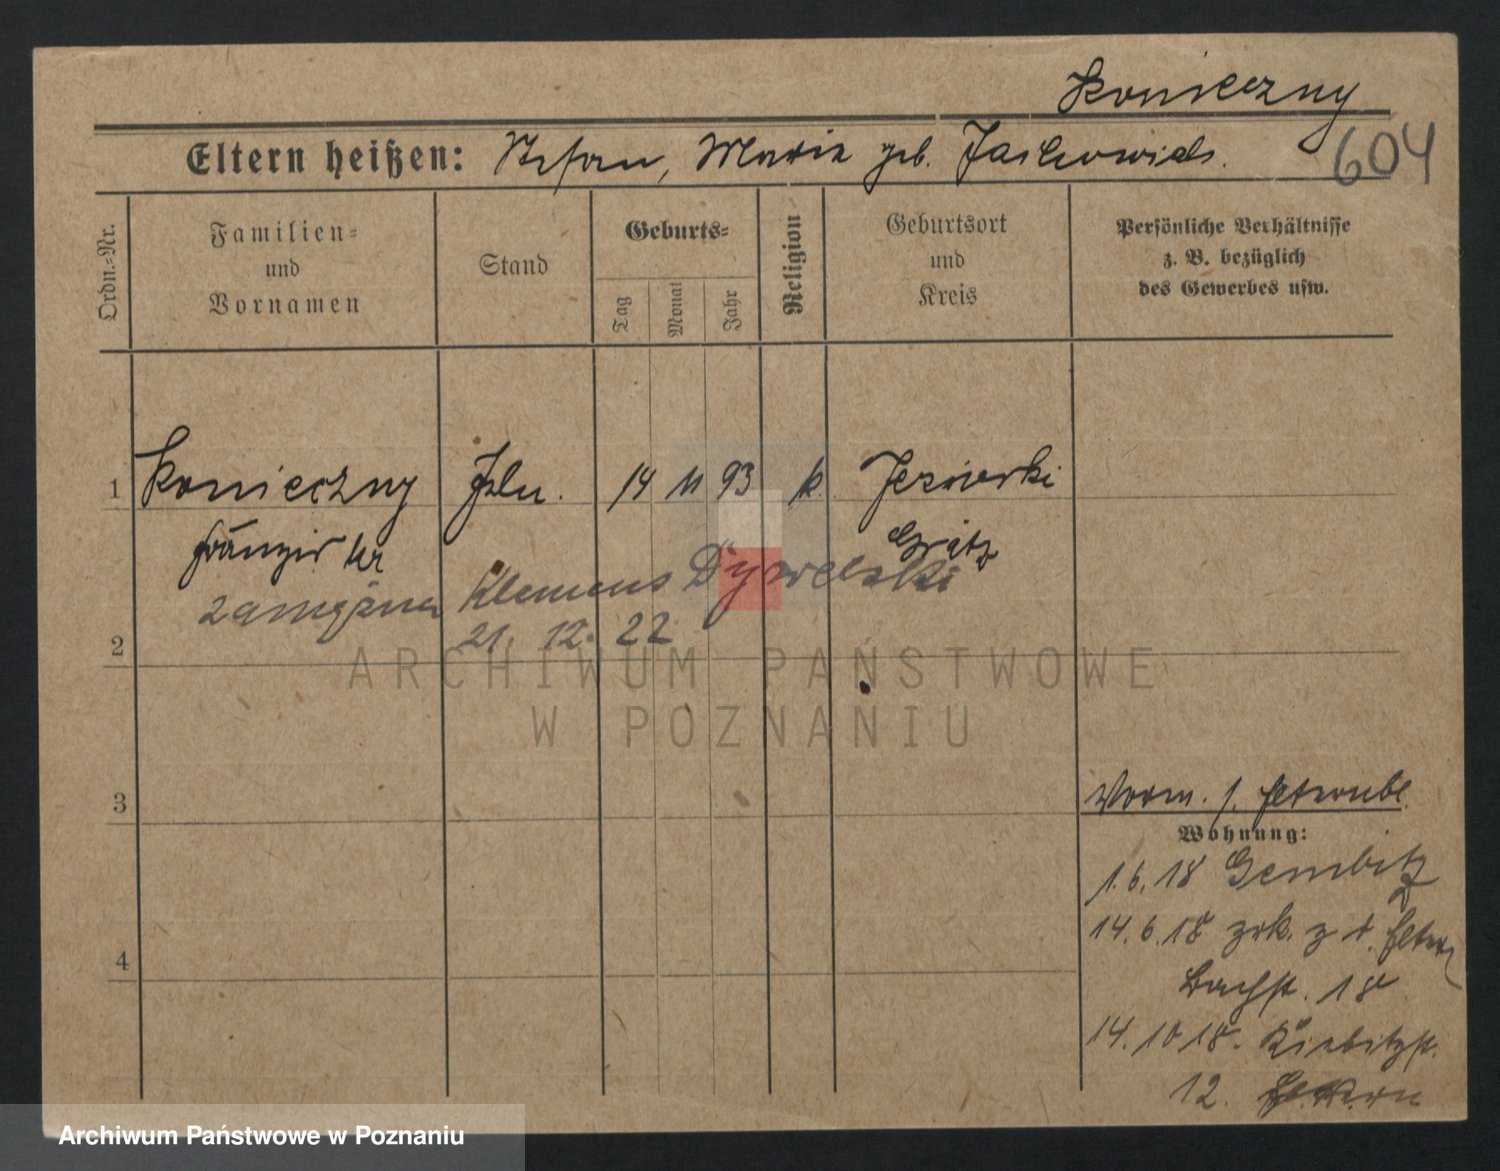 Konieczny
604
Eltern heißen: Stefan, Maria geb.
Ordn.-Nr.
Familien-
und
Vornamen
Stand
Geburts-
Tag
Monat
Jahr
Religion
Geburtsort
und
Kreis
Persönliche Verhältnisse
z. B. bezüglich
des Gewerbes usw.
1 Konieczny 14 11 93 k. Jeziorki
Franziska Grätz
zamężna Klemens Dywelski
21. 12. 22
2
ARCHIWUM PAŃSTWOWE
W POZNANIU
3
Vorm. s. Elternbl.
Wohnung:
1.6.18 Gembitz
14.6.18 zrk. z d. Eltern
Bachst. 18
4
14.10.18. Kiebitzst.
12.
Archiwum Państwowe w Poznaniu